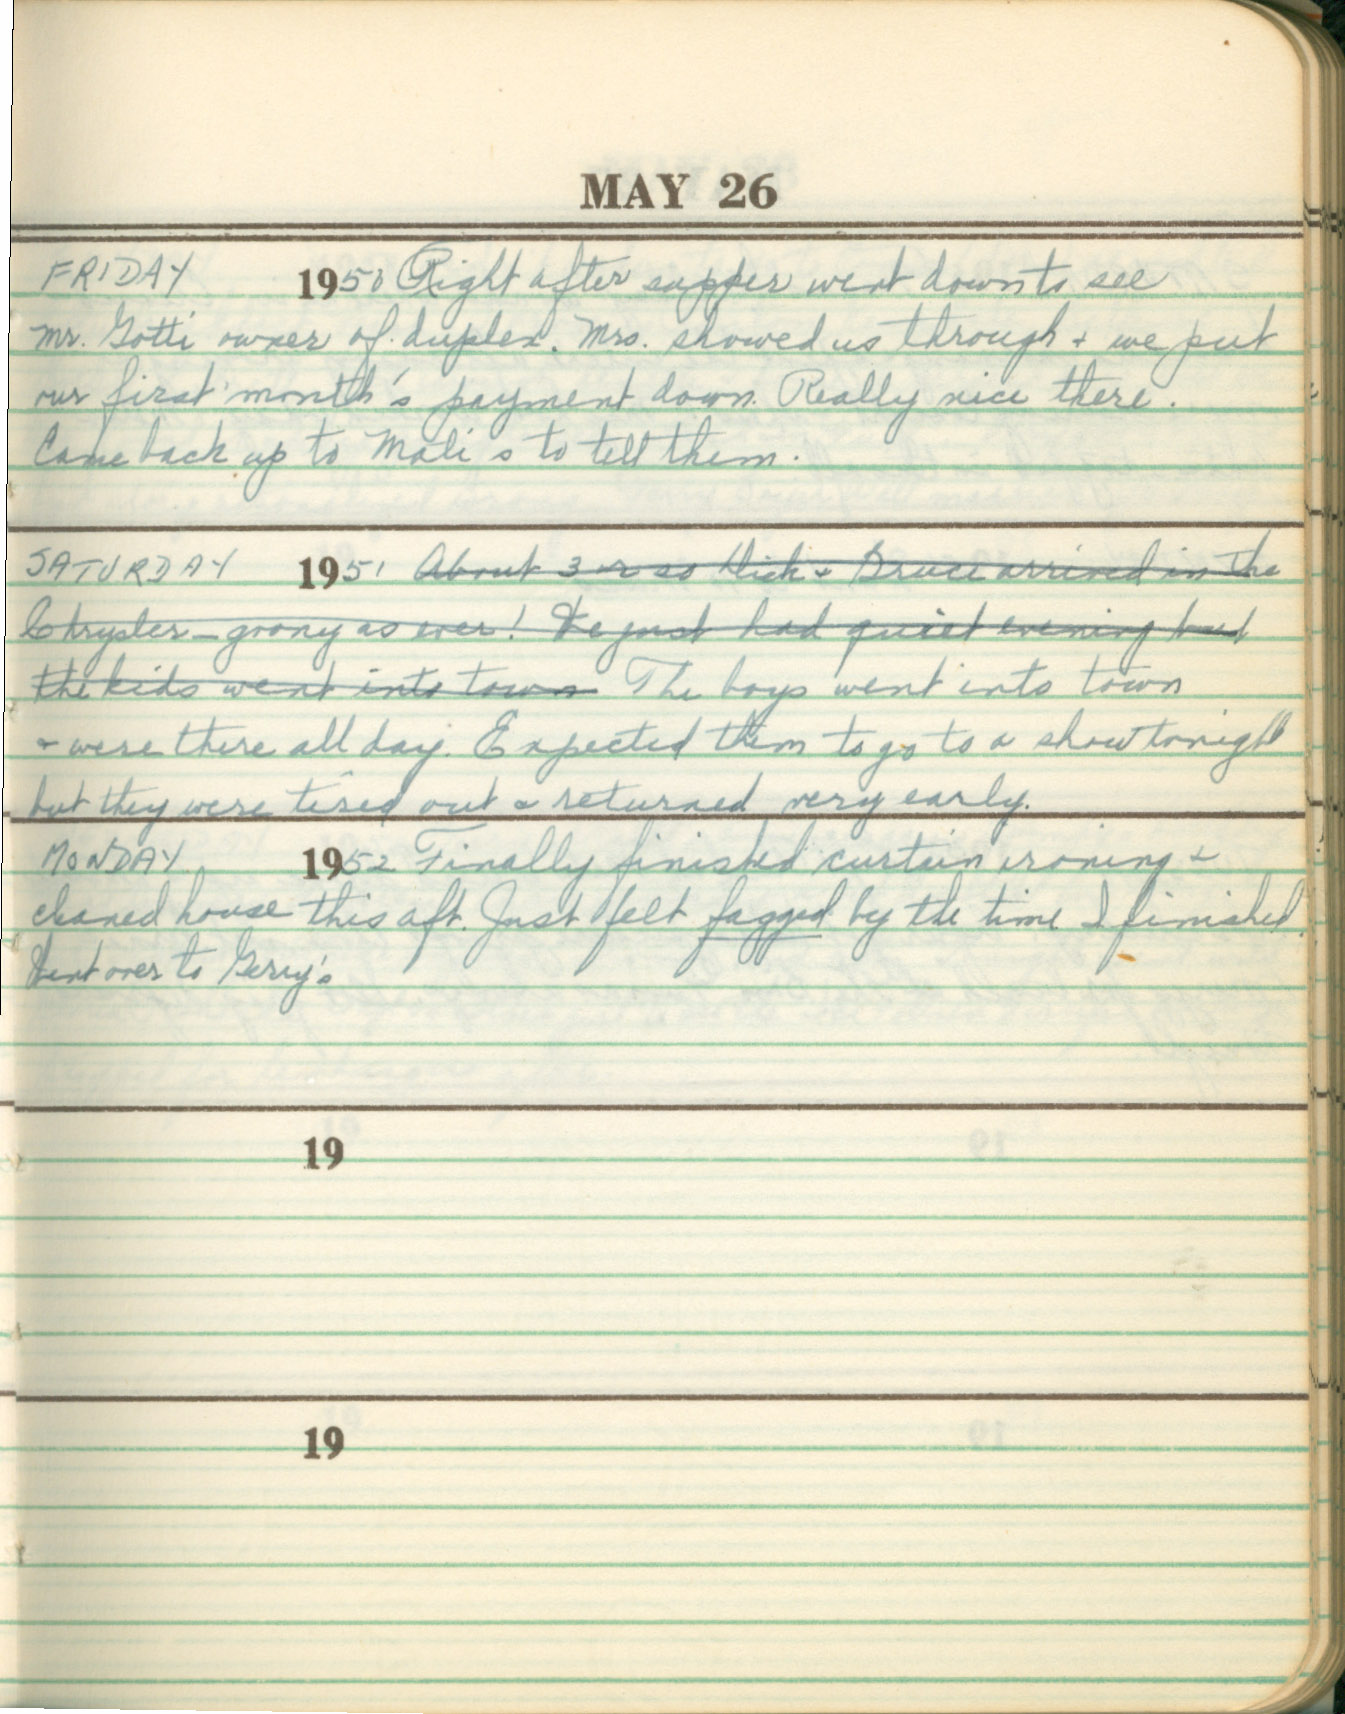 MAY 26
FRIDAY 1950 Right after supper went down to see
Mr. Gotti owner of duplex. Mrs. showed us through + we put
our first month's payment down. Really nice there.
Came back up to Mali s to tell them.
SATURDAY 1951 About 3 or so Dick + Bruce arrived in the
Chrysler – groany as ever! We just had quiet evening but
the kids went into town The boys went into town
+ were there all day. Expected them to go to a show tonight
but they were tired out & returned very early.
MONDAY 1952 Finally finished curtain ironing +
cleaned house this aft. Just felt fagged by the time I finished.
Went over to Gerry's
19
19